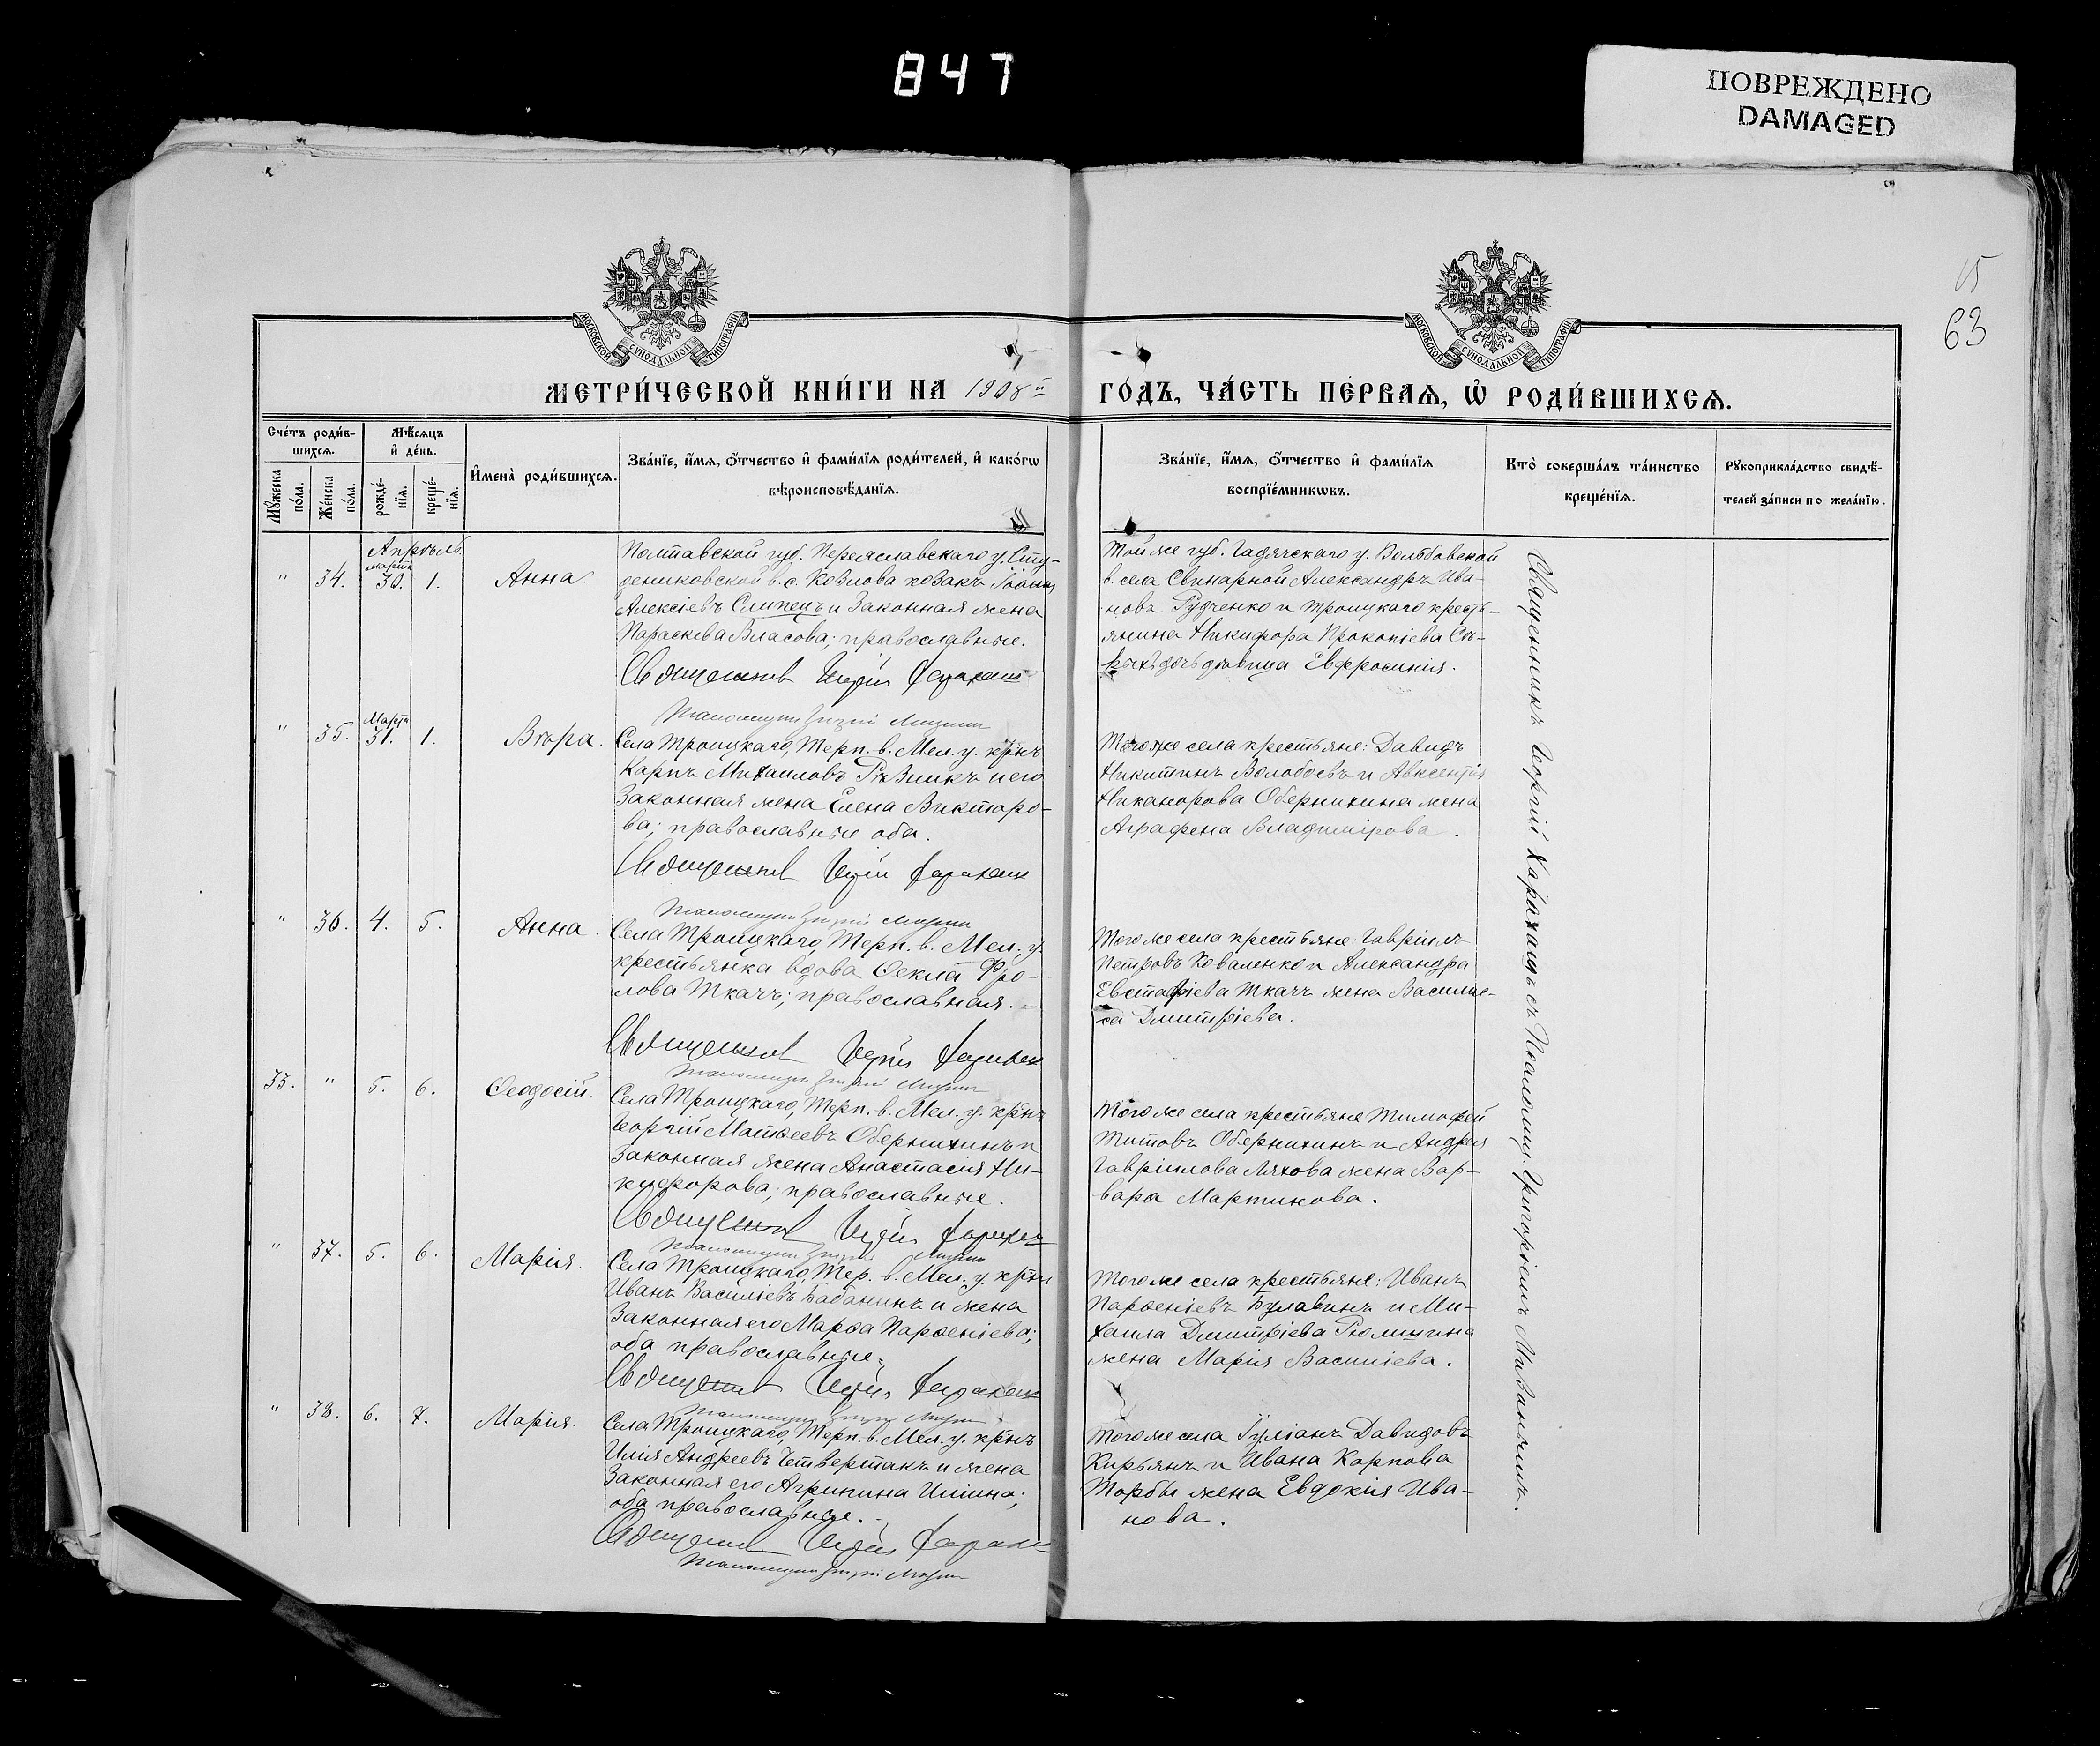 847
ПОВРЕЖДЕНО
DAMAGED
15
63
МОСКОВСКОЙ СѴНОДАЛЬНОЙ ТИПОГРАФІИ
МОСКОВСКОЙ СѴНОДАЛЬНОЙ ТИПОГРАФІИ
МЕТРИ́ЧЕСКОЙ КНИ́ГИ НА 1908й ГО́ДЪ, ЧА́СТЬ ПЕ́РВАѦ, Ѡ҆ РОДИ́ВШИХСѦ.
Сче́тъ роди́в-
шихсѧ.
Мꙋ́жеска по́ла.
Же́нска по́ла.
Мѣ́сѧцъ
и҆ де́нь.
рожде́-
нїѧ.
креще́-
нїѧ.
И҆мена̀ роди́вшихсѧ.
Зва́нїе, и҆́мѧ, ѻ҆́тчество и҆ фами́лїѧ роди́телей, и҆ како́гѡ
вѣроисповѣ́данїѧ.
Зва́нїе, и҆́мѧ, ѻ҆́тчество и҆ фами́лїѧ
воспрїе́мникѡвъ.
Кто̀ соверша́лъ та́инство
креще́нїѧ.
Рꙋкоприкла́дство свидѣ́-
телей за́писи по жела́нїю.
Апрѣль
" 34. Марта 30. 1. Анна.
Полтавской губ. Переяславскаго у. Сту-
дениковской в. с. Козлова козакъ Іоаннъ
Алексіевъ Слипецъ и законная жена
Параскева Власова; православные.
Священникъ
Той же губ. Гадячскаго у. Вельбовской
в. села Свинарной Александръ Ива-
новъ Рудченко и троицкаго кресть-
янина Никифора Прокопіева
дочь дѣвица Евфросинія.
Священникъ Георгій Харахашъ съ Псаломщ. Григоріемъ
" 35. Марта 31. 1. Вѣра.
Села Троицкаго, Терп. в. Мел. у. кр̃нъ
Карпъ Михаиловъ Рѣзникъ и его
законная жена Елена Викторо-
ва; православные оба.
Священникъ
Того же села крестьяне: Давидъ
Никитинъ Волобоевъ и Авксентія
Никанорова Оберникина жена
Аграфена Владимірова.
" 36. 4. 5. Анна.
Села Троицкаго, Терп. в. Мел. у.
крестьянка вдова Ѳекла Фро-
лова Ткачъ; православная.
Священникъ
Того же села крестьяне: Гавріилъ
Петровъ Коваленко и Александра
Евстафіева Ткачъ жена Василис-
са Дмитріева.
33. " 5. 6. Ѳеодосій.
Села Троицкаго, Терп. в. Мел. у. кр̃нъ
Георгій Матѳеевъ Обернихинъ и
законная жена Анастасія Ни-
кифорова; православные.
Священникъ
Того же села крестьяне Тимофей
Титовъ Обернихинъ и Андрея
Гавріилова Ляхова жена Вар-
вара Мартинова.
" 37. 5. 6. Марія.
Села Троицкаго, Тер. в. Мел. у. кр̃нъ
Иванъ Васильевъ Бабанинъ и жена
законная его Марѳа Парѳеніева;
оба православные.
Священникъ
Того же села крестьяне: Иванъ
Парѳеніевъ Булавинъ и Ми-
хаила Дмитріева Рюмшина
жена Марія Василіева.
" 38. 6. 7. Марія.
Села Троицкаго, Терп. в. Мел. у. кр̃нъ
Илія Андреевъ Четвертакъ и жена
законная его Агрипина Иліина;
оба православные.
Священникъ
Того же села Іуліанъ Давидовъ
Кирьянъ и Ивана Карпова
Торбы жена Евдокія Ива-
нова.